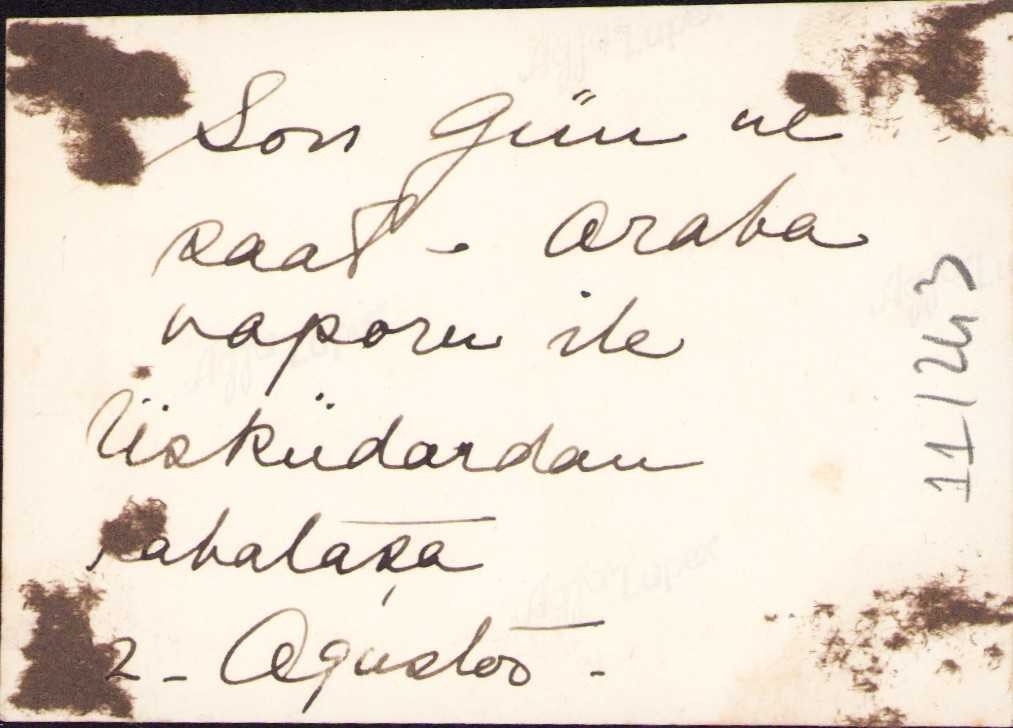 Son gün ve
saat - araba
vaporu ile
Üsküdardan
Kabataşa
2 - Agustos -
11/243